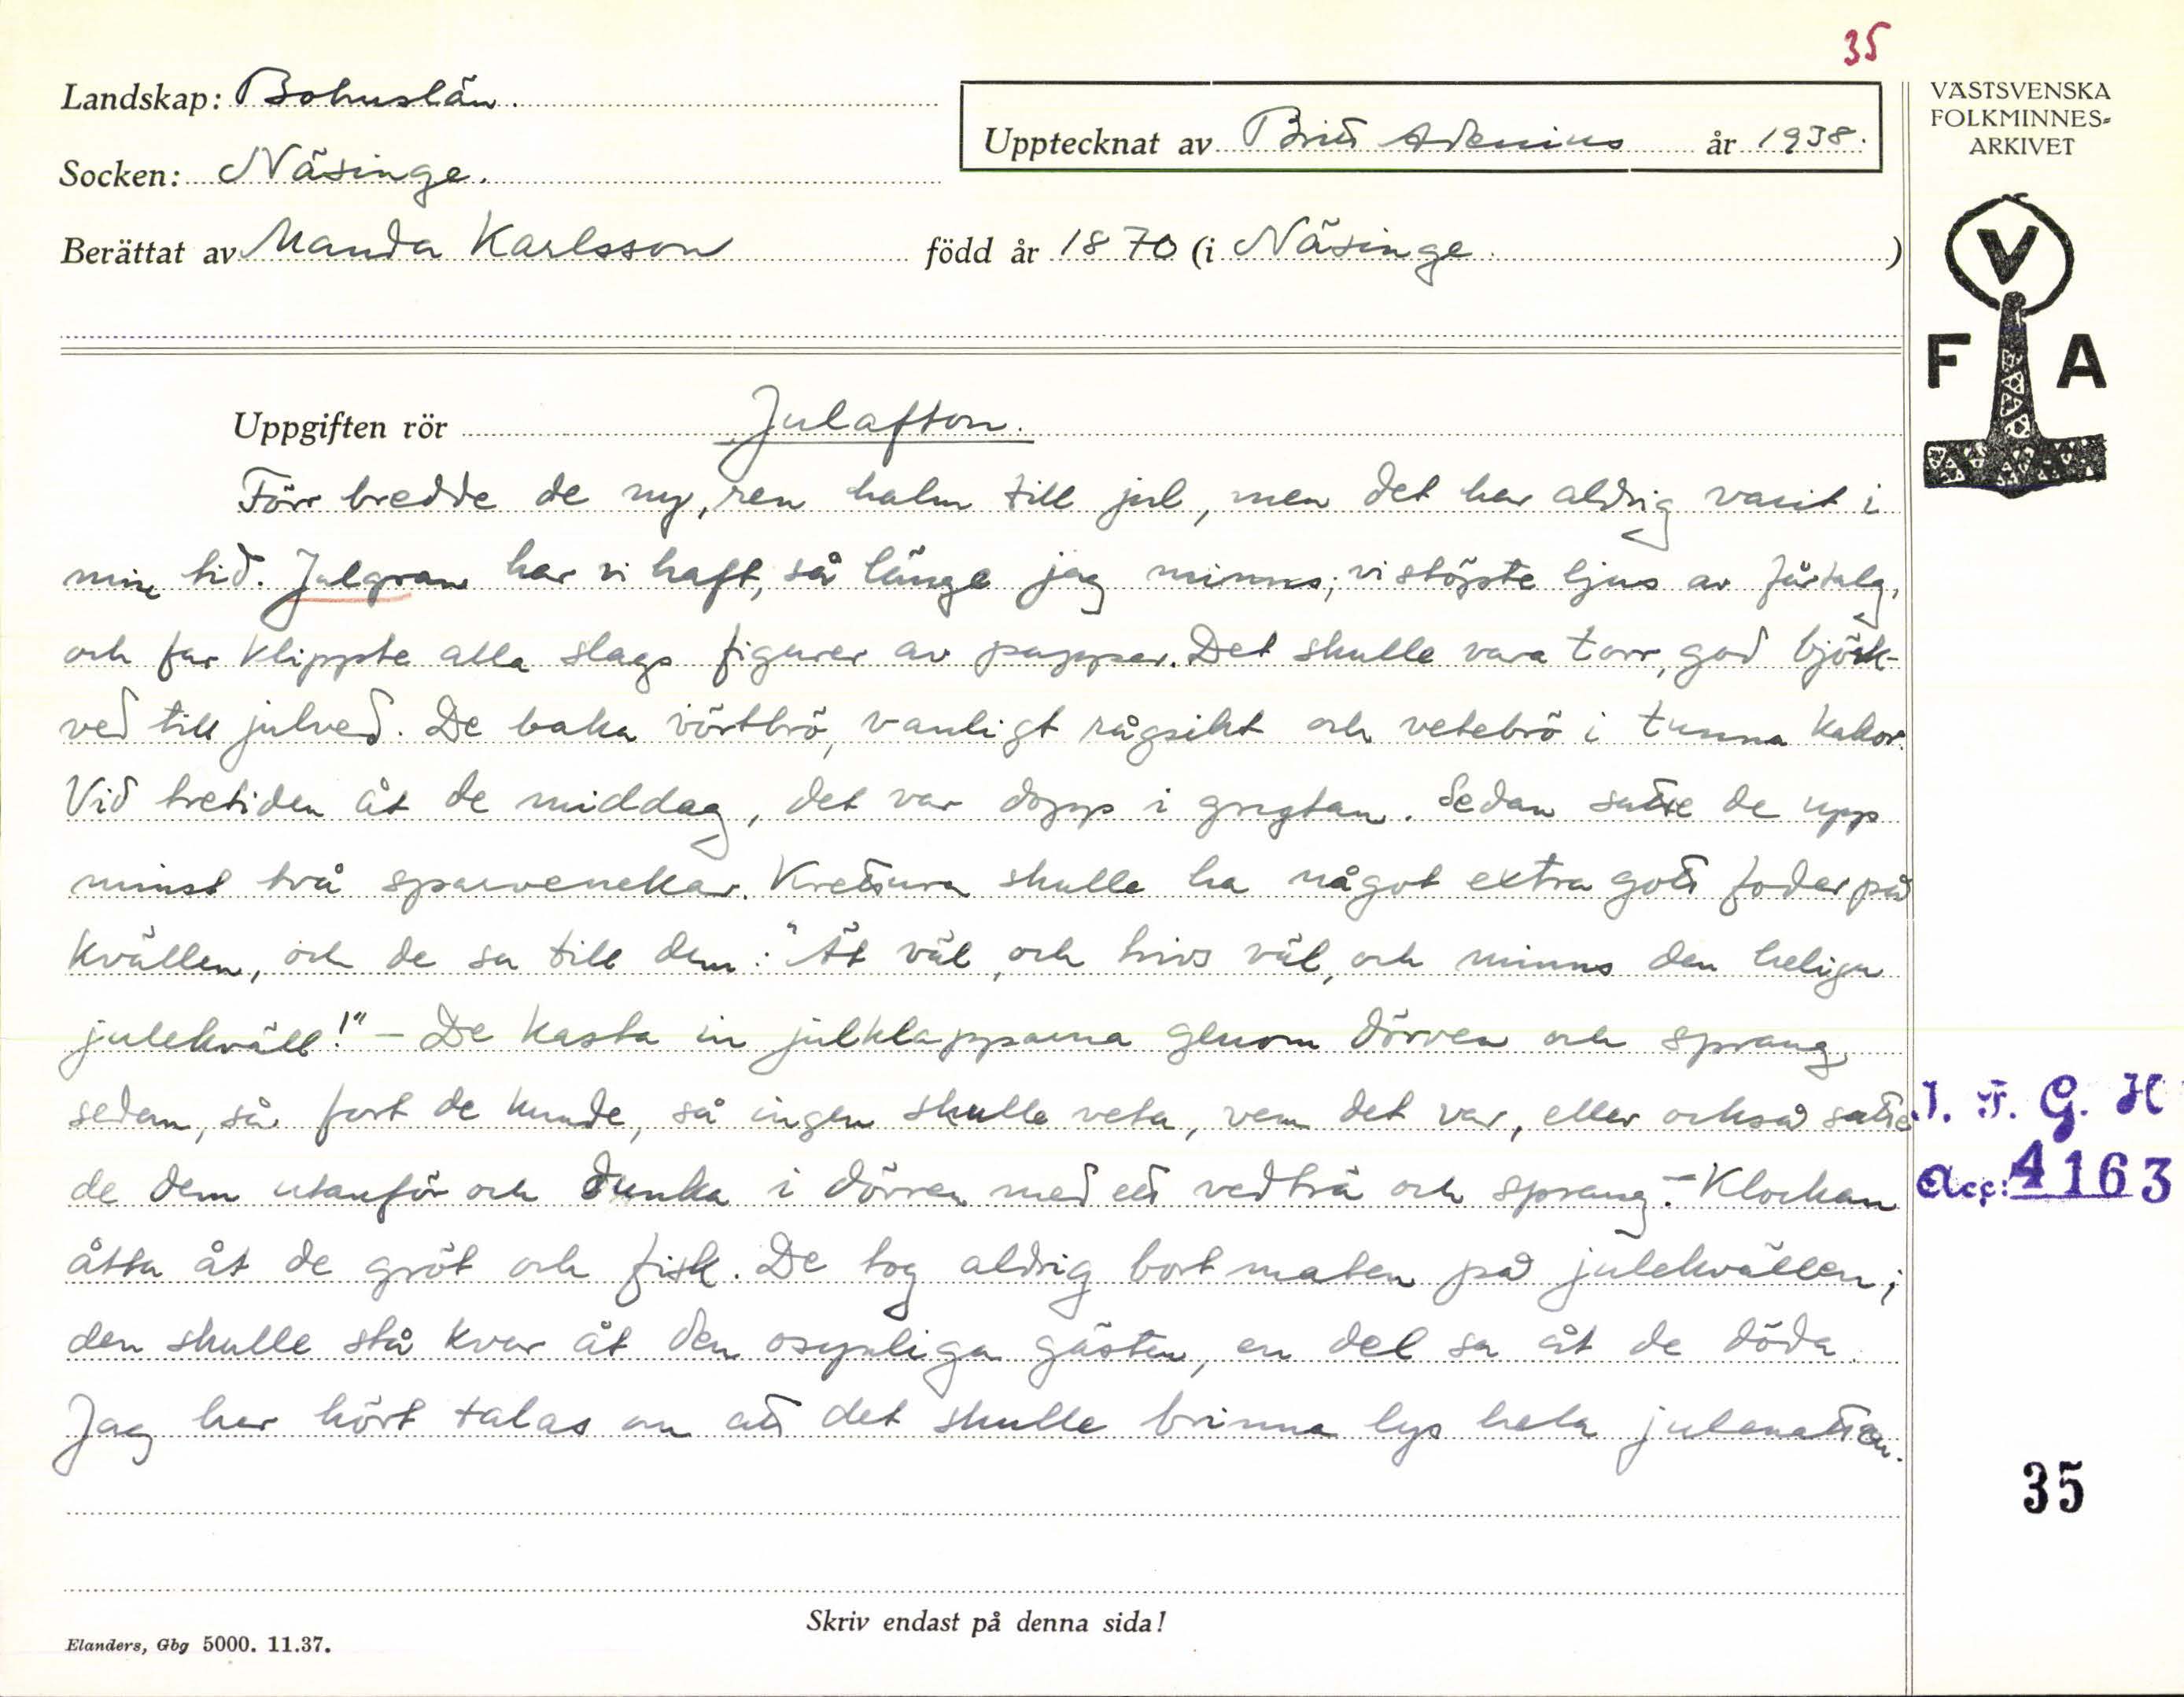 35
Landskap: Bohuslän.
Upptecknat av Britt Adenius år 1938.
Socken: Näsinge.
Berättat av Manda Karlsson född år 1870 (i Näsinge )
VÄSTSVENSKA
FOLKMINNES-
ARKIVET
V
F A
Uppgiften rör Julafton.
Förr bredde de ny, ren halm till jul, men det har aldrig varit i
min tid. Julgran har vi haft, så länge jag minns; vi stöpste ljus av fårtalg,
och far klippte alla slags figurer av papper. Det skulle vara torr, god björk-
ved till julved. De baka vörtbrö, vanligt rågsikt och vetebrö i tunna kakor.
Vid tretiden åt de middag, det var dopp i grytan. Sedan satte de upp
minst två sparvenekar. Kretura skulle ha något extra gott foder på
kvällen, och de sa till dem: "Ät väl, och trivs väl, och minns den heliga
julekväll!" – De kasta in julklapparna genom dörren och sprang
sedan, så fort de kunde, så ingen skulle veta, vem det var, eller också satte
de dem utanför och dunka i dörren med ett vedträ och sprang. – Klockan
åtta åt de gröt och fisk. De tog aldrig bort maten på julekvällen;
den skulle stå kvar åt den osynliga gästen, en del sa åt de döda.
Jag har hört talas om att det skulle brinna lys hela julenatten.
I. F. G. H
Acc: 4163
35
Skriv endast på denna sida!
Elanders, Gbg 5000. 11.37.